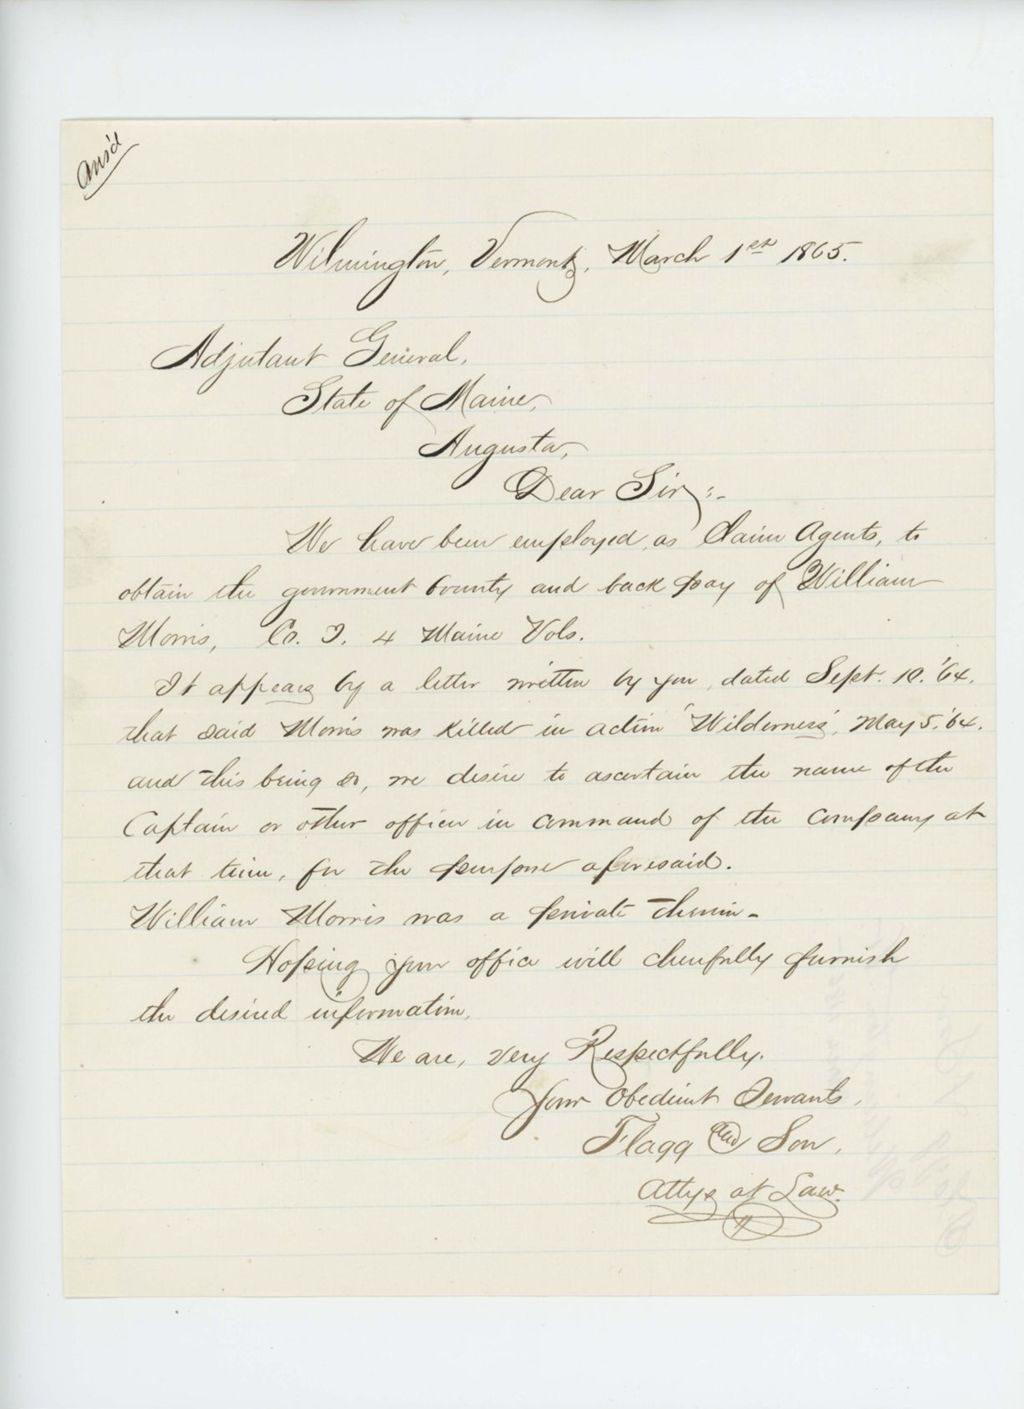 Ans'd
Wilmington, Vermont, March 1st 1865.
Adjutant General,
State of Maine,
Augusta,
Dear Sir:-
We have been employed, as Claim Agents, to
obtain the government bounty and back pay of William
Morris, Co. I. 4 Maine Vols.
It appears by a letter written by you, dated Sept. 10. '64,
that said Morris was killed in action "Wilderness", May 5, '64,
and this being so, we desire to ascertain the name of the
Captain or other officer in command of the Company at
that time, for the purpose aforesaid.
William Morris was a private therein-
Hoping your office will cheerfully furnish
the desired information,
We are, very Respectfully,
Your Obedient Servants,
Flagg and Son,
Attys at Law.